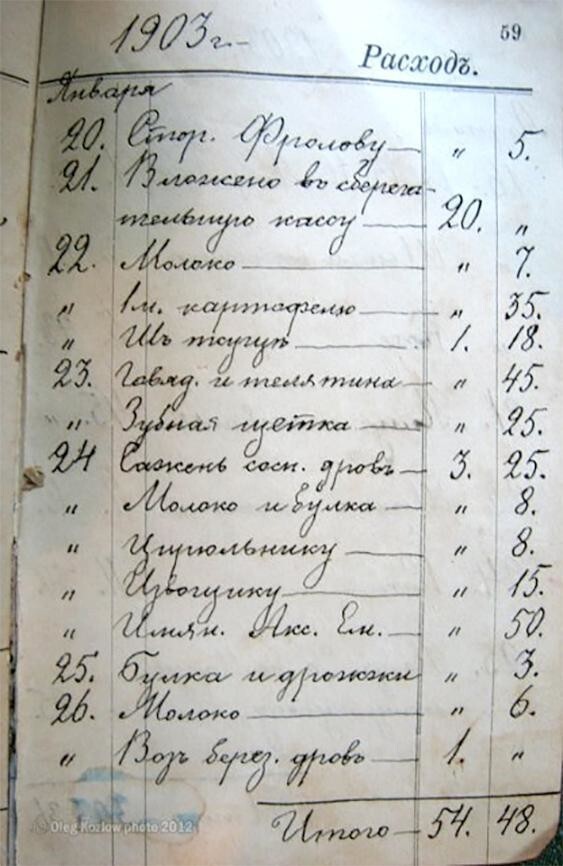 59
1903 г.
Расходъ.
Января
20. Стор. Фролову — " 5.
21. Вложено въ сберега-
тельную кассу — 20. "
22. Молоко — " 7.
" 1 м. картофелю — " 35.
" — 1. 18.
23. Говяд. и телятина — " 45.
" Зубная щетка — " 25.
24 Сажень сосн. дровъ — 3. 25.
" Молоко и булка — " 8.
" Цирюльнику — " 8.
" Извощику — " 15.
" Имян. Акс. Ем. — " 50.
25. Булка и дрожжи " 3.
26. Молоко — " 6.
" Возъ берез. дровъ — 1. "
Итого — 54. 48.
© Oleg Kozlow photo 2012